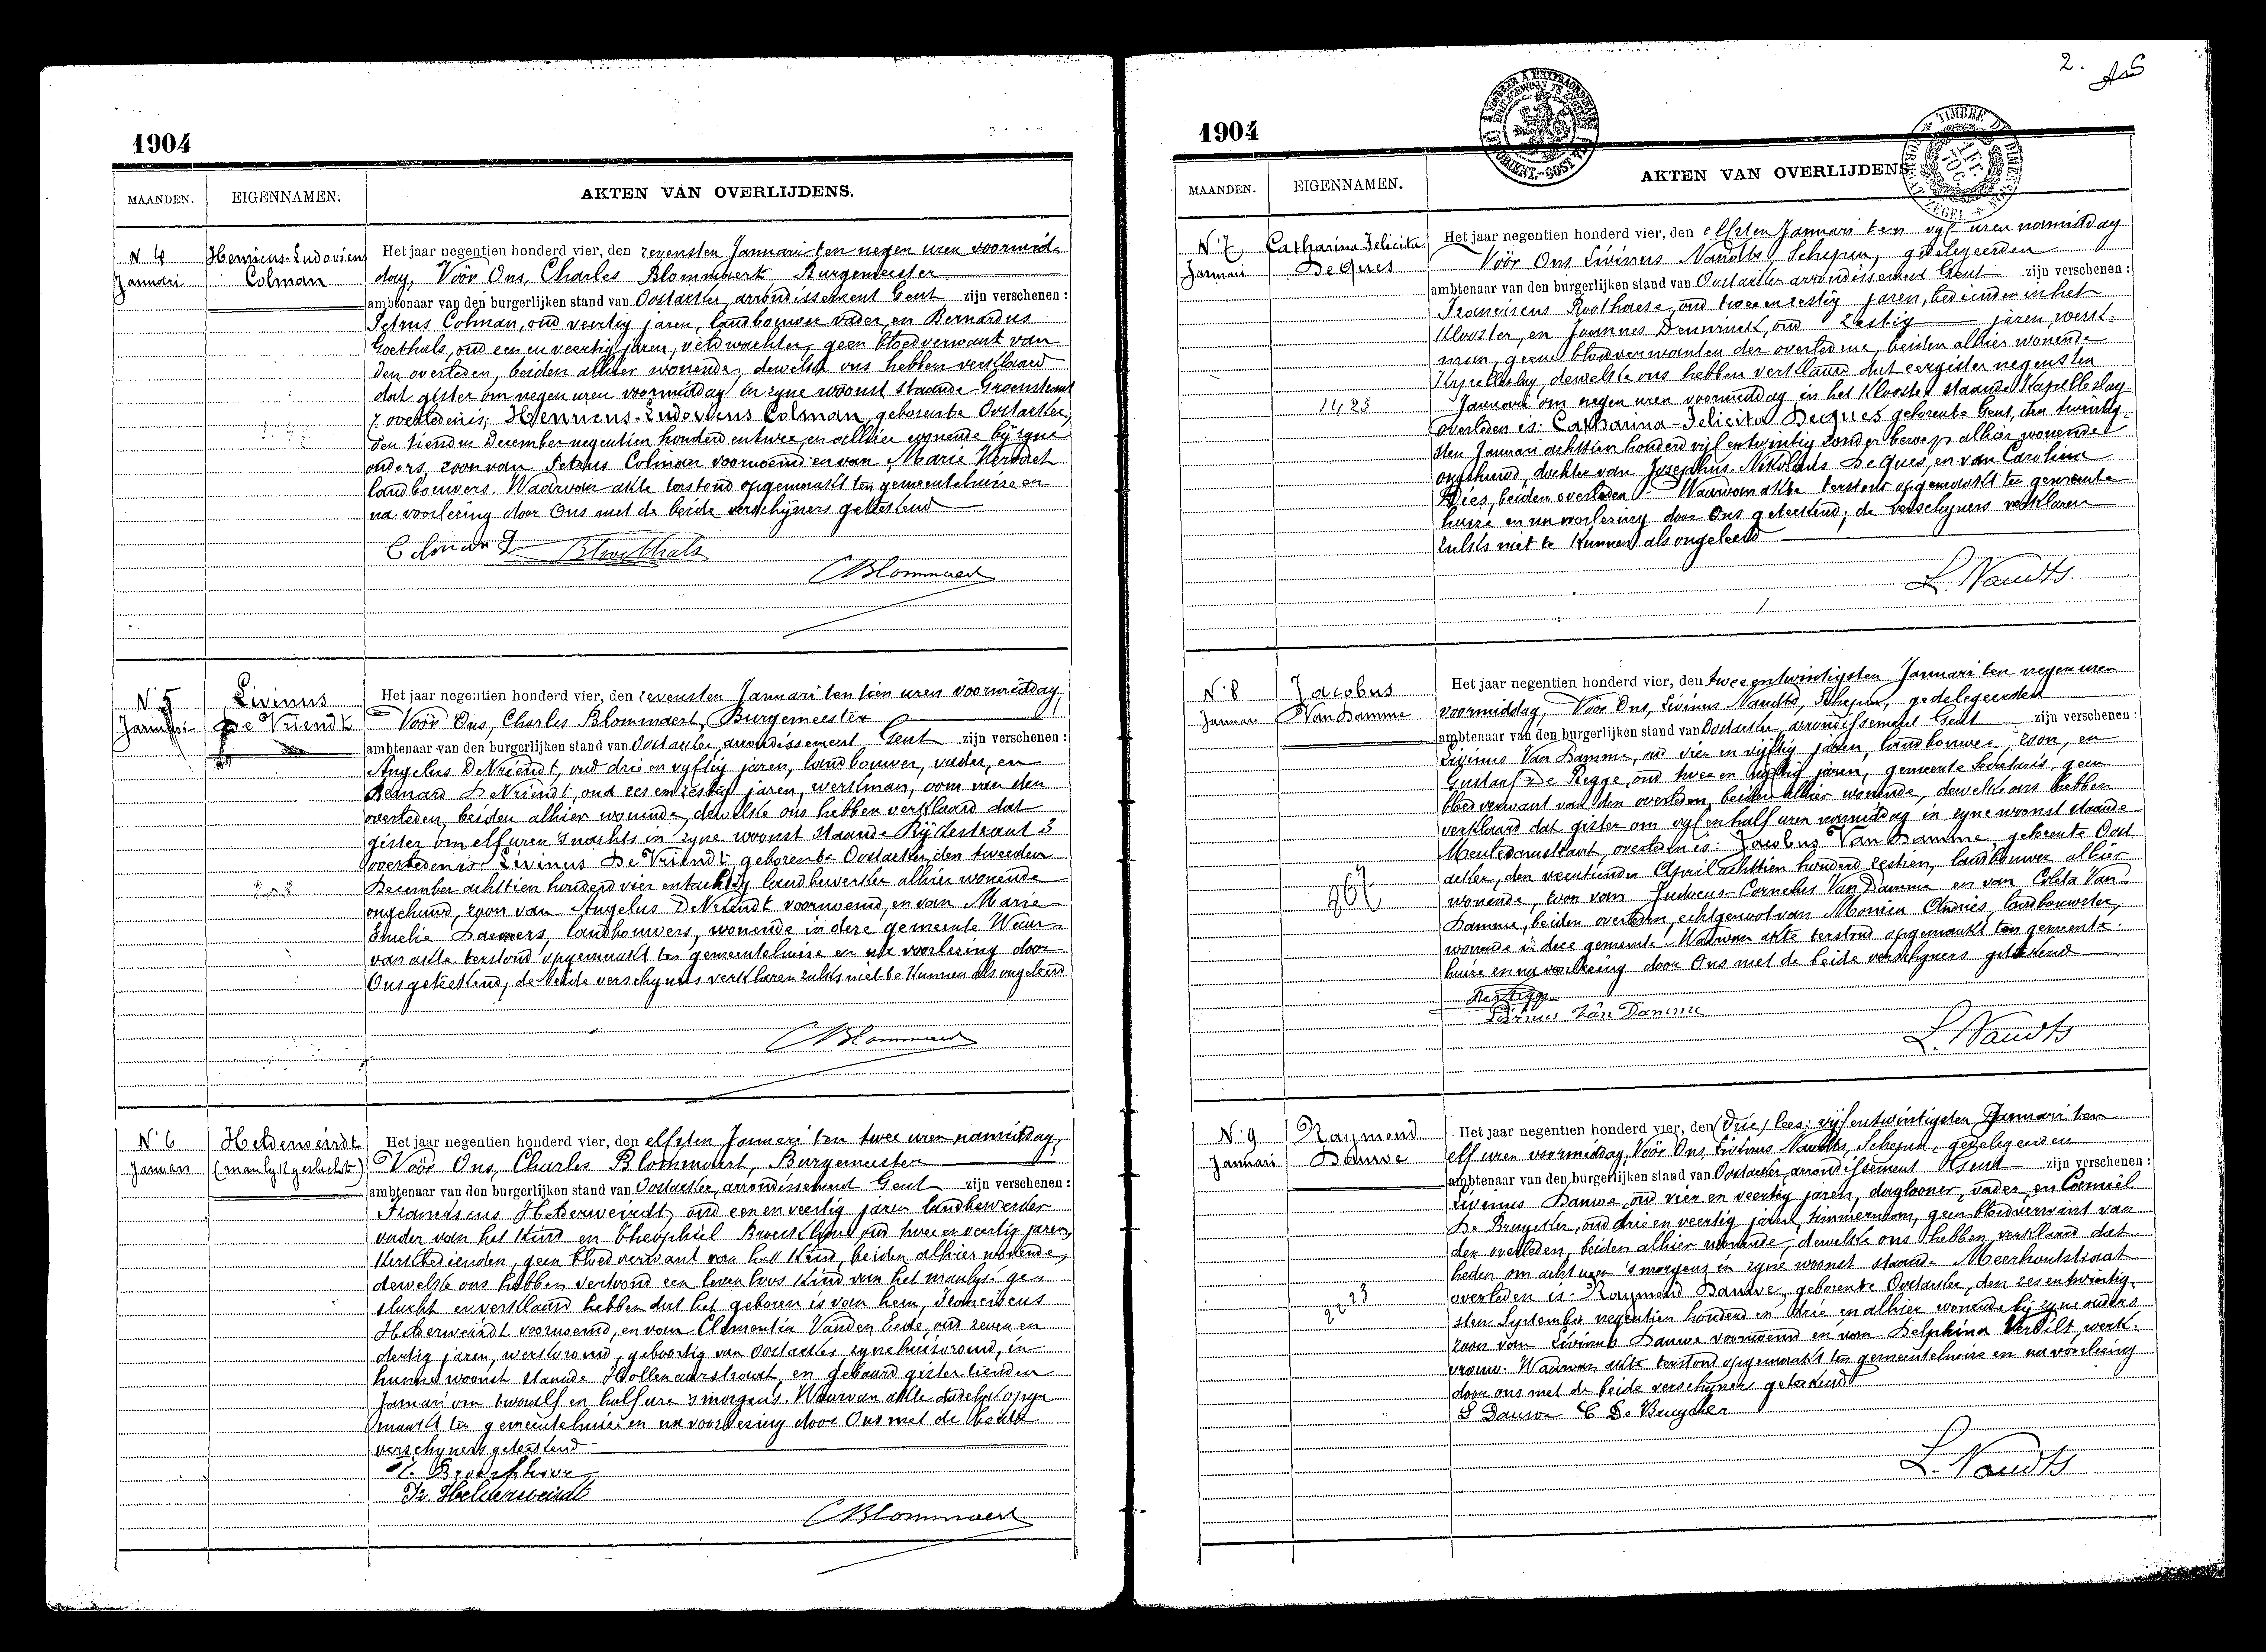 1904
MAANDEN. EIGENNAMEN. AKTEN VAN OVERLIJDENS.
N. 4 Januari
Henricus-Ludovicus Colman
Het jaar negentien honderd vier, den zevensten Januari ten negen uren voormid-
dag, Voör Ons, Charles Blommaert Burgemeester
ambtenaar van den burgerlijken stand van Oostacker, arrondissement Gent zijn verschenen:
Petrus Colman, oud veertig jaren, landbouwer vader, en Bernardus
Goethals, oud een en veertig jaren, veldwachter, geen bloedverwant van
den overleden, beiden alhier wonende, dewelke ons hebben verklaard
dat gister om negen uren voormiddag in zyne woonst staande Groenstraat
7. overleden is, Henricus-Ludovicus Colman, geboren te Oostacker,
den tienden December negentien honderd en twee, en alhier wonende bij zyne
ouders, zoon van Petrus Colman voornoemd en van Marie
landbouwers. Waarvan akte terstond opgemaakt ten gemeentehuize en
na voorlezing door Ons met de beide verschijners geteekend
Colman P BGoethals
CBlommaert
N. 5 Januari
Livinus De Vriendt
Het jaar negentien honderd vier, den zevensten Januari ten tien uren voormiddag,
Voör Ons, Charles Blommaert, Burgemeester
ambtenaar van den burgerlijken stand van Oostacker, arrondissement Gent zijn verschenen:
Angelus DeVriendt, oud drie en vyftig jaren, landbouwer, vader, en
Bernard DeVriendt, oud zes en zestig jaren, werkman, oom van den
overleden, beiden alhier wonende, dewelke ons hebben verklaard dat
gister om elf uren s'nachts in zyne woonst staande 3
overleden is Livinus De Vriendt geboren te Oostacker, den tweeden
December achttien honderd vier en tachtig landbewerker alhier wonende
ongehuwd, zoon van Angelus DeVriendt voornoemd, en van Marie
Emelie landbouwers, wonende in deze gemeente Waar-
van akte terstond opgemaakt ten gemeentehuize en na voorlezing door
Ons geteekend, de beide verschyners verklaren zulks niet te kunnen als ongeleerd
CBlommaert
N. 6 Januari
Helderweirdt (manlyk geslacht)
Het jaar negentien honderd vier, den elfsten Januari ten twee uren namiddag,
Voör Ons, Charles Blommaert, Burgemeester
ambtenaar van den burgerlijken stand van Oostacker, arrondissement Gent zijn verschenen:
Franciscus Helderweirdt, oud een en veertig jaren landbewerker
vader van het kind en Theophiel oud twee en veertig jaren,
kerkbedienden, geen bloedverwant van het kind, beiden alhier wonende,
dewelke ons hebben vertoond een levenloos kind van het manlyk ge-
slacht en verklaard hebben dat het geboren is van hem, Franciscus
Helderweirdt voornoemd, en van Clementia Vanden Eede, oud zeven en
dertig jaren, werkvrouw, geboortig van Oostacker zyne huisvrouw, in
hunne woonst staande Hollenaarstraat en gebaard gister tienden
Januari om twaalf en half ure s'morgens. Waarvan akte dadelyk opge-
maakt ten gemeentehuize en na voorlezing door Ons met de beide
verschyners geteekend
Fr. Helderweirdt
CBlommaert
2.
1904
MAANDEN. EIGENNAMEN. AKTEN VAN OVERLIJDENS.
N. 7 Januari
Catharina Felicita DeQues
1423
Het jaar negentien honderd vier, den elfsten Januari ten vyf uren namiddag
Voör Ons Livinus Naudts Schepen, gedelegeerden
ambtenaar van den burgerlijken stand van Oostacker arrondissement Gent zijn verschenen:
Franciscus Roothaese, oud twee en zestig jaren, bedienden in het
Klooster, en Joannes oud zestig jaren, werk-
man, geene bloedverwanten der overledene, beiden alhier wonende
Kapelleslag, dewelke ons hebben verklaard dat eergister negensten
Januari om negen uren voormiddag in het Klooster staande Kapelleslag
overleden is: Catharina-Felicita DeQues geboren te Gent, den twintig-
sten Januari achttien honderd vijf en twintig zonder bewerp alhier wonende
ongehuwd, dochter van Josephus-Nikolaus DeQues, en van Carolina
Dies, beiden overleden. Waarvan akte terstond opgemaakt ten gemeente
huize en na voorlezing door Ons geteekend, de verschyners verklaren
zulks niet te kunnen als ongeleerd
L. Naudts
N. 8 Januari
Jacobus VanDamme
967
Het jaar negentien honderd vier, den twee en twintigsten Januari ten negen uren
voormiddag, Voör Ons, Livinus Naudts, Schepen, gedelegeerden
ambtenaar van den burgerlijken stand van Oostacker, arrondissement Gent zijn verschenen:
Livinus Van Damme, oud vier en vijftig jaren, landbouwer, zoon, en
Gustaaf De Regge, oud twee en vyftig jaren, gemeente Secretaris, geen
bloedverwant van den overleden, beiden alhier wonende, dewelke ons hebben
verklaard dat gister om vyf en half uren namiddag in zyne woonst staande
overleden is: Jacobus Van Damme, geboren te Oost-
acker, den veertienden April achttien honderd zestien, landbouwer alhier
wonende, zoon van Judocus-Cornelus Van Damme en van Coleta Van
Damme, beiden overleden, echtgenoot van Monica Andries, landbouwster,
wonende in deze gemeente. Waarvan akte terstond opgemaakt ten gemeente-
huize en na voorlezing door Ons met de beide verschyners geteekend
Livinus Van Damme
L. Naudts
N. 9 Januari
Raymond Dauwe
2223
Het jaar negentien honderd vier, den (drie) lees: vijf en twintigsten Januari ten
elf uren voormiddag, Voör Ons, Livinus Naudts, Schepen, gedelegeerden
ambtenaar van den burgerlijken stand van Oostacker, arrondissement Gent zijn verschenen:
Livinus Dauwe, oud vier en veertig jaren, daglooner, vader, en Camiël
De Bruycker, oud drie en veertig jaren, timmerman, geen bloedverwant van
den overleden, beiden alhier wonende, dewelke ons hebben verklaard dat
heden om acht uren 's morgens in zyne woonst staande Meerhoutstraat
overleden is: Raymond Dauwe, geboren te Oostacker, den zes en twintig-
sten September negentien honderd en drie en alhier wonende bij zyne ouders
zoon van Livinus Dauwe voornoemd en van Delphina Verbilt, werk-
vrouw. Waarvan akte terstond opgemaakt ten gemeentehuize en na voorlezing
door ons met de beide verschyners geteekend
L Dauwe C De Bruycker
L. Naudts